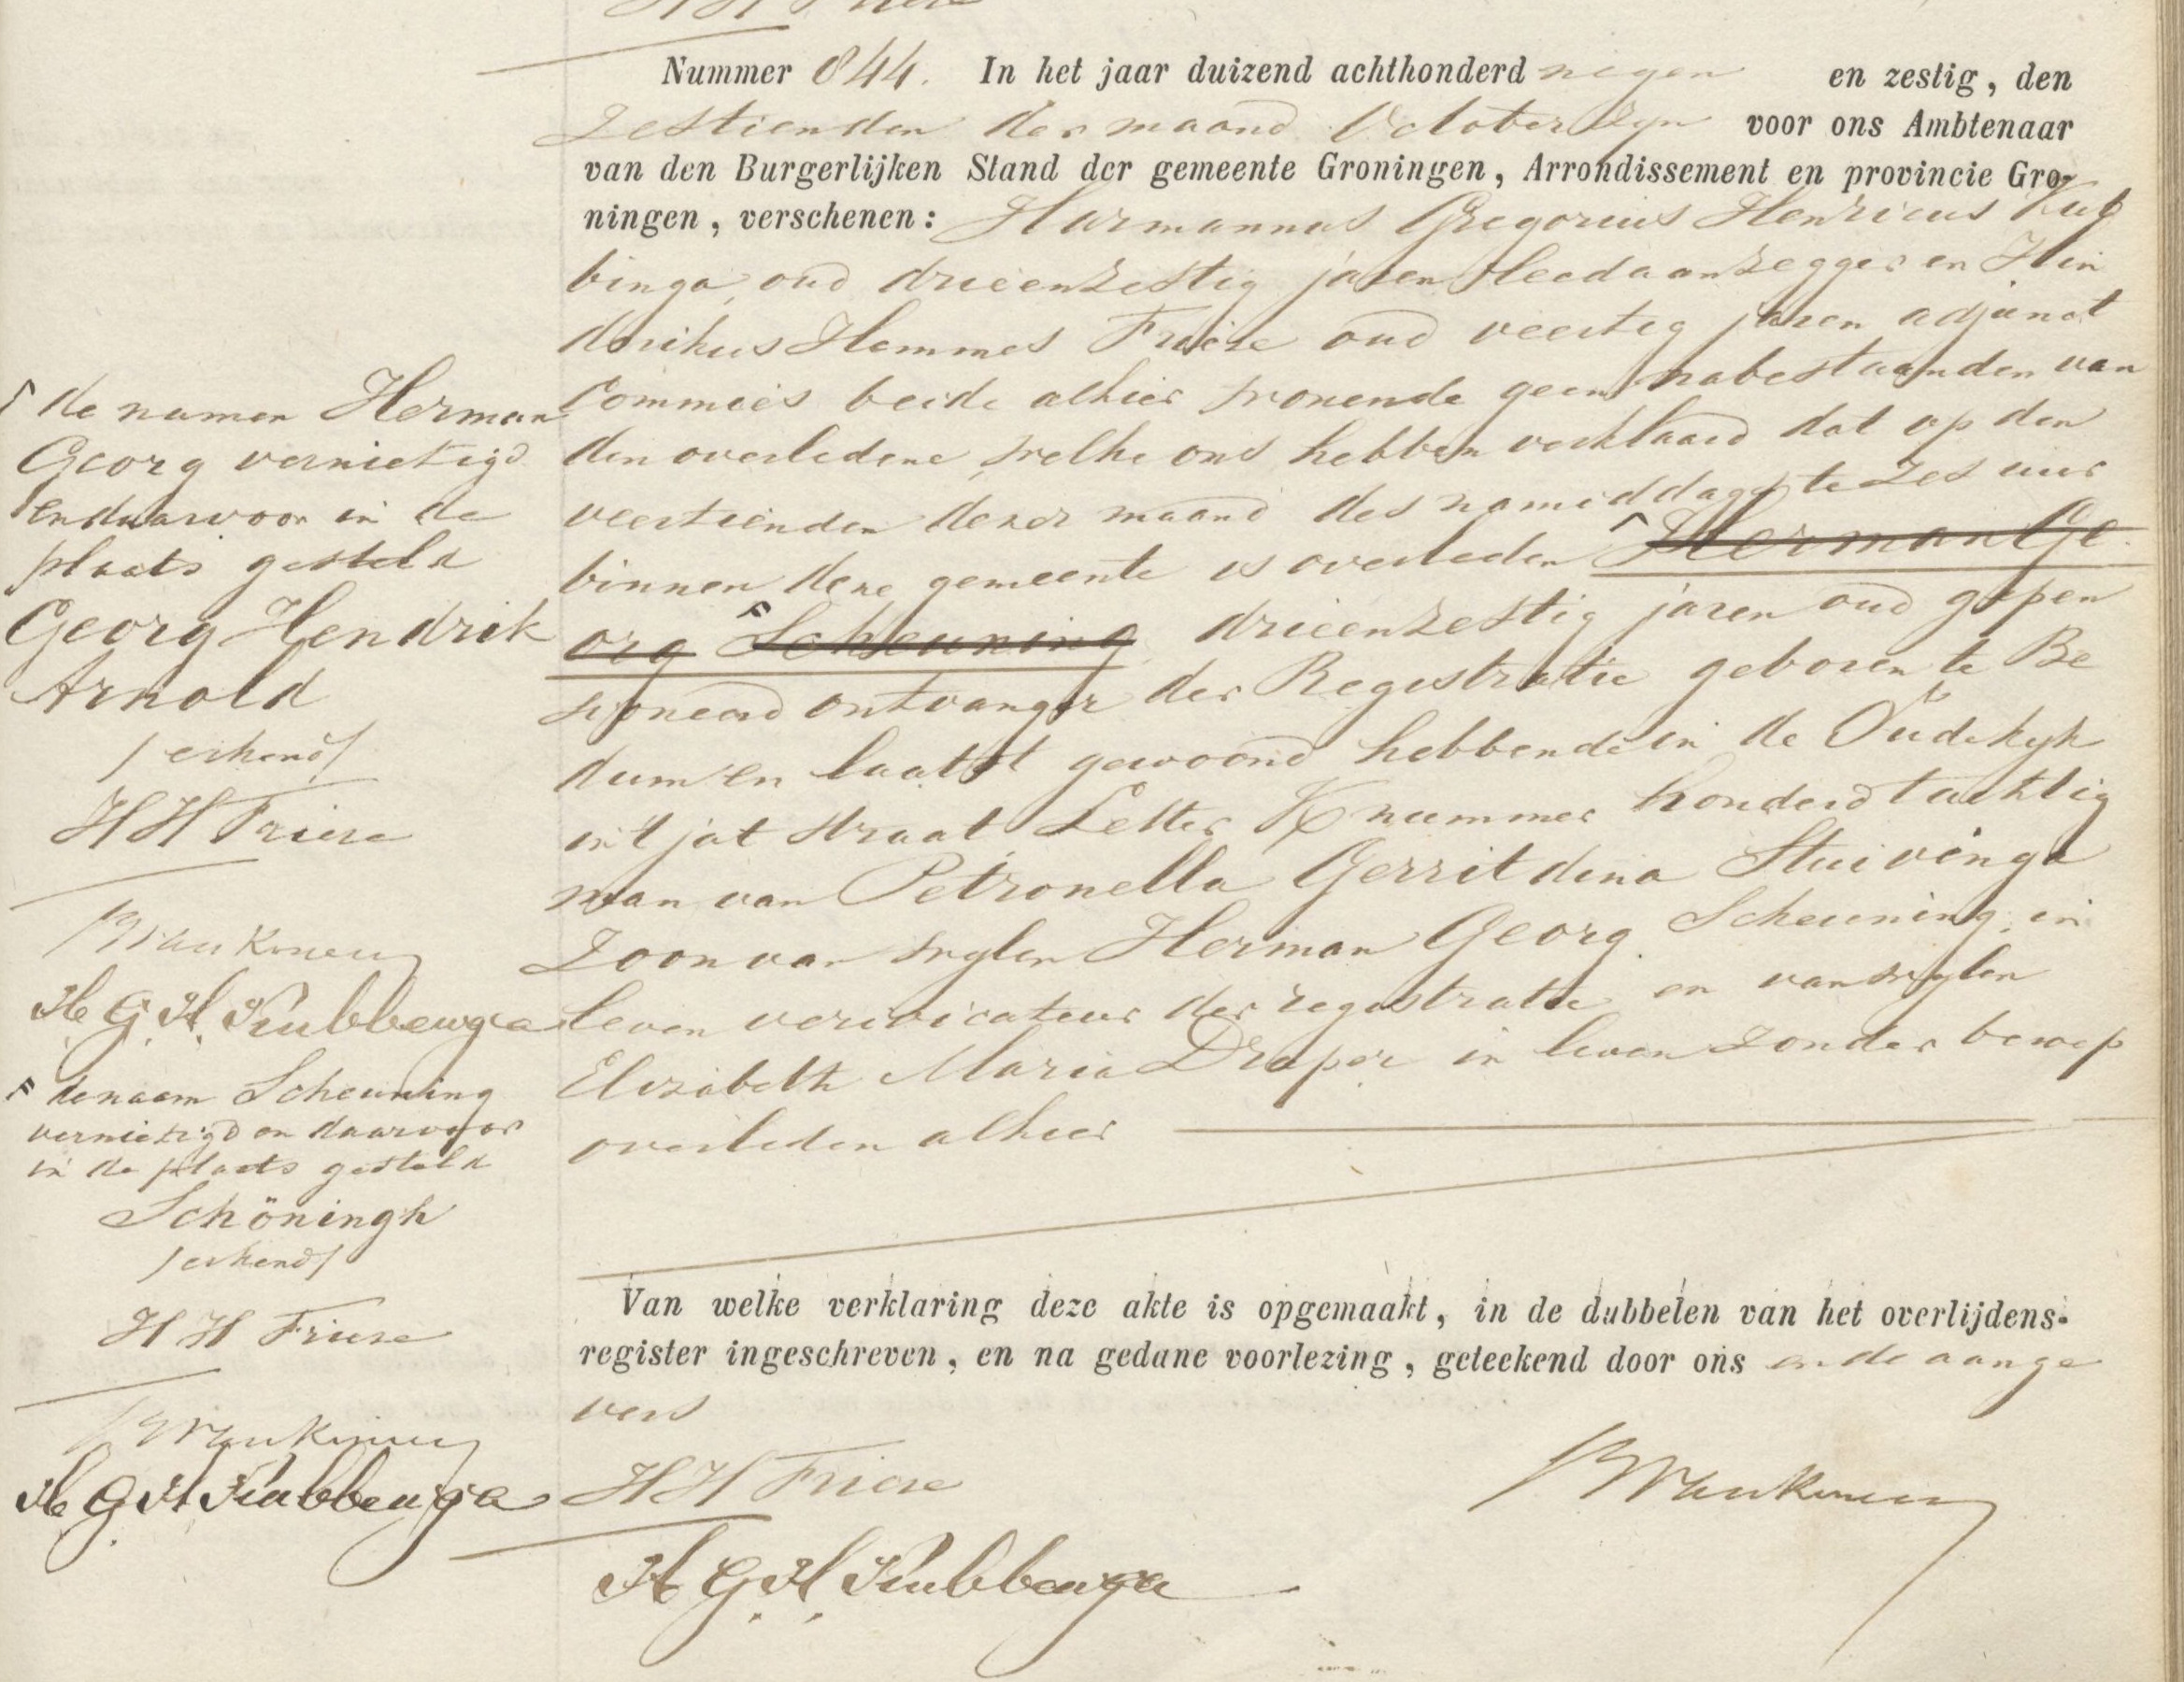 Nummer 844. In het jaar duizend achthonderd negen en zestig, den
zestienden der maand October zijn voor ons Ambtenaar
van den Burgerlijken Stand der gemeente Groningen, Arrondissement en provincie Gro-
ningen, verschenen: Harmannus Gregorius Henricus Kub
binga, oud drieenzestig jaren Leedaanzegger en Hin
derikus Hemmes Frieze oud veertig jaren adjunct
Commies beide alhier wonende geen nabestaanden van
den overledene, welke ons hebben verklaard dat op den
veertienden dezer maand des namiddags te zes uur
binnen deze gemeente is overleden Herman Ge
org Scheuning drieenzestig jaren oud gepen
sioneerd ontvanger der Registratie geboren te Be
dum en laatst gewoond hebbende in de Oude kyk
in 't jat straat Letter K nummer honderd tachtig
man van Petronella Gerritdina Stuivinga
zoon van wylen Herman Georg Scheuning, in
leven verivicateur der registratie en van wylen
Elizabeth Maria Draper in leven zonder beroep
overleden alhier
Van welke verklaring deze akte is opgemaakt, in de dubbelen van het overlijdens-
register ingeschreven, en na gedane voorlezing, geteekend door ons en de aange
vers
HH Frieze
H G H Kubbenga
de namen Herman
Georg vernietigd
en daarvoor in de
plaats gesteld
Georg Hendrik
Arnold
/erkend/
HH Frieze
H. G. H. Kubbenga
de naam Scheuning
vernietigd en daarvoor
in de plaats gesteld
Schöningh
/erkend/
HH Frieze
H G H Kubbenga